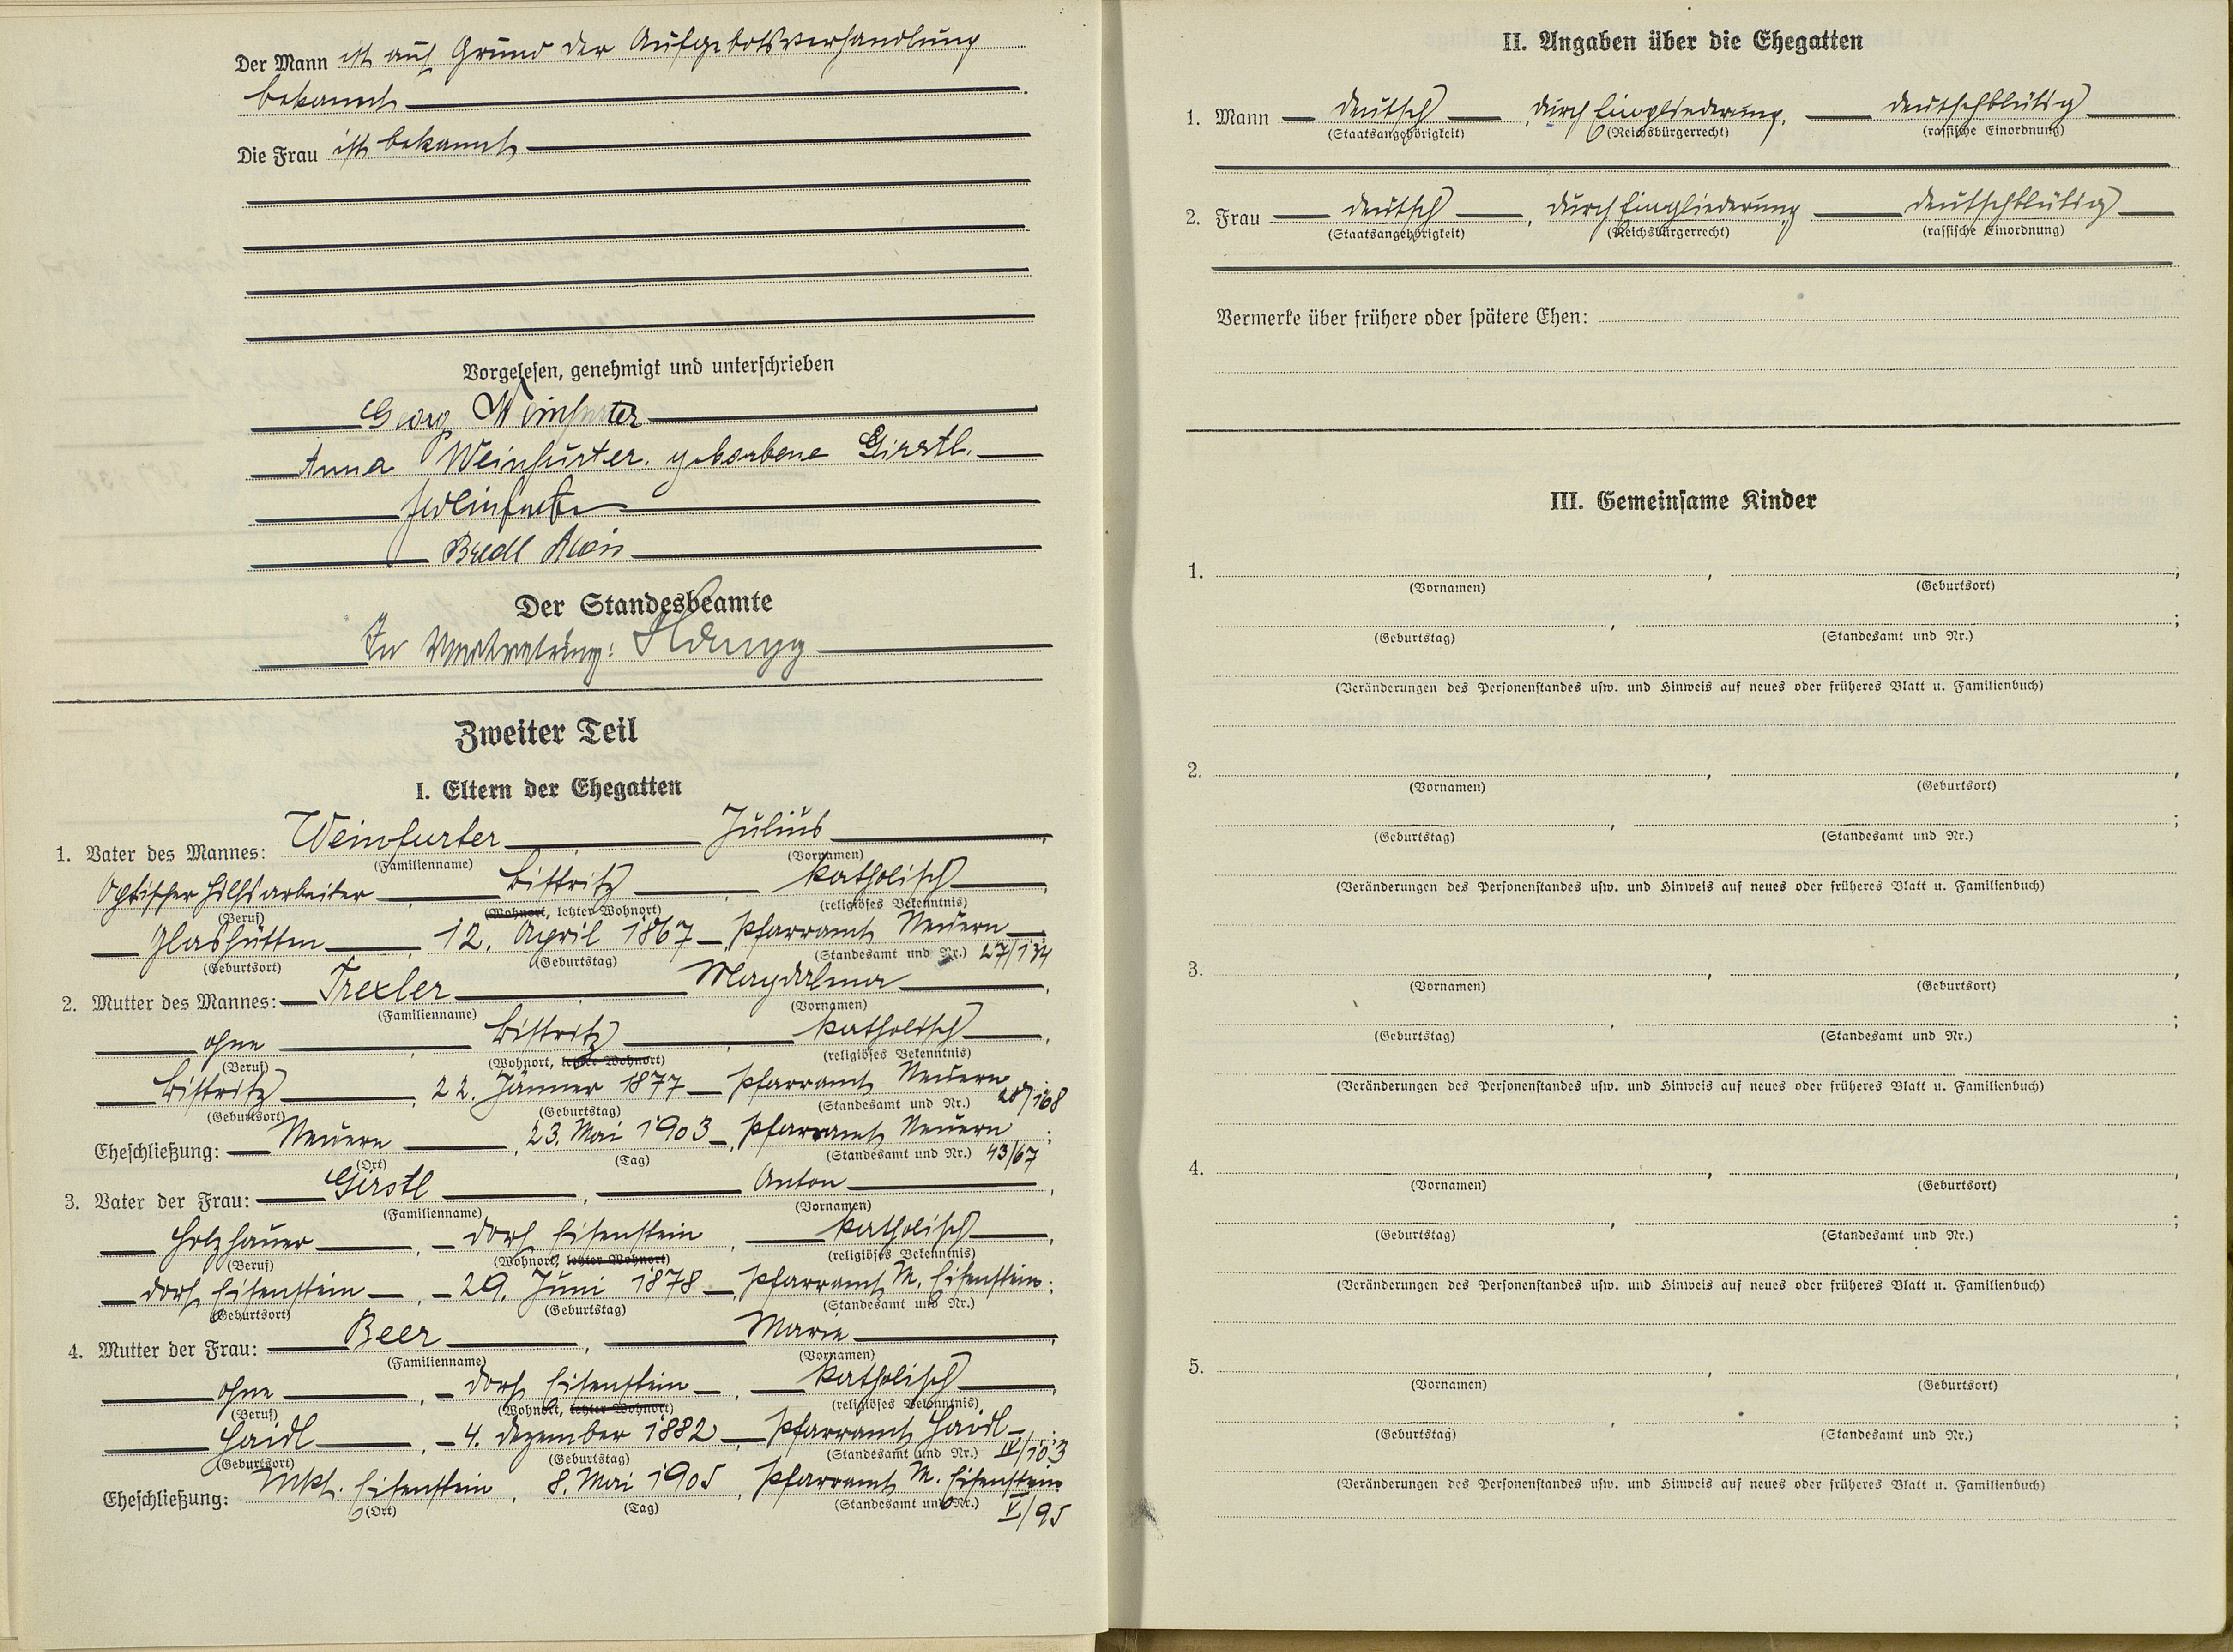 Der Mann ist auf Grund der Aufgebotsverhandlung
bekannt
Die Frau ist bekannt
Vorgelesen, genehmigt und unterschrieben
Georg Weinfurter
Anna Weinfurter. geborbene Girstl.
JWeinfurter
Bredl Alois
Der Standesbeamte
In Vertretung:
Zweiter Teil
I. Eltern der Ehegatten
1. Vater des Mannes: Weinfurter, Julius,
(Familienname) (Vornamen)
Optischer Hilfsarbeiter, Bistritz, katholisch,
(Beruf) (Wohnort, letzter Wohnort) (religiöses Bekenntnis)
Glashütten, 12. April 1867, Pfarramt Neuern
(Geburtsort) (Geburtstag) (Standesamt und Nr.) 27/134
2. Mutter des Mannes: Trexler, Magdalena,
(Familienname) (Vornamen)
ohne, Bistritz, katholisch,
(Beruf) (Wohnort, letzter Wohnort) (religiöses Bekenntnis)
Bistritz, 22. Jänner 1877, Pfarramt Neuern;
(Geburtsort) (Geburtstag) (Standesamt und Nr.) 28/168
Eheschließung: Neuern, 23. Mai 1903, Pfarramt Neuern;
(Ort) (Tag) (Standesamt und Nr.) 43/67
3. Vater der Frau: Girstl, Anton,
(Familienname) (Vornamen)
Holzhauer, Dorf Eisenstein, katholisch,
(Beruf) (Wohnort, letzter Wohnort) (religiöses Bekenntnis)
Dorf Eisenstein, 29. Juni 1878, Pfarramt M. Eisenstein;
(Geburtsort) (Geburtstag) (Standesamt und Nr.)
4. Mutter der Frau: Beer, Marie,
(Familienname) (Vornamen)
ohne, Dorf Eisenstein, katholisch,
(Beruf) (Wohnort, letzter Wohnort) (religiöses Bekenntnis)
Haidl, 4. Dezember 1882, Pfarramt Haidl;
(Geburtsort) (Geburtstag) (Standesamt und Nr.) IV/103
Eheschließung: Mkt. Eisenstein, 8. Mai 1905, Pfarramt M. Eisenstein
(Ort) (Tag) (Standesamt und Nr.) V/95
II. Angaben über die Ehegatten
1. Mann deutsch durch Eingliederung, deutschblütig
(Staatsangehörigkeit) (Reichsbürgerrecht) (rassische Einordnung)
2. Frau deutsch, durch Eingliederung deutschblütig
(Staatsangehörigkeit) (Reichsbürgerrecht) (rassische Einordnung)
Vermerke über frühere oder spätere Ehen:
III. Gemeinsame Kinder
1. , ;
(Vornamen) (Geburtsort)
, ;
(Geburtstag) (Standesamt und Nr.)
(Veränderungen des Personenstandes usw. und Hinweis auf neues oder früheres Blatt u. Familienbuch)
2. , ,
(Vornamen) (Geburtsort)
, ;
(Geburtstag) (Standesamt und Nr.)
(Veränderungen des Personenstandes usw. und Hinweis auf neues oder früheres Blatt u. Familienbuch)
3. , ,
(Vornamen) (Geburtsort)
, ;
(Geburtstag) (Standesamt und Nr.)
(Veränderungen des Personenstandes usw. und Hinweis auf neues oder früheres Blatt u. Familienbuch)
4. , ,
(Vornamen) (Geburtsort)
, ;
(Geburtstag) (Standesamt und Nr.)
(Veränderungen des Personenstandes usw. und Hinweis auf neues oder früheres Blatt u. Familienbuch)
5. , ,
(Vornamen) (Geburtsort)
, ;
(Geburtstag) (Standesamt und Nr.)
(Veränderungen des Personenstandes usw. und Hinweis auf neues oder früheres Blatt u. Familienbuch)